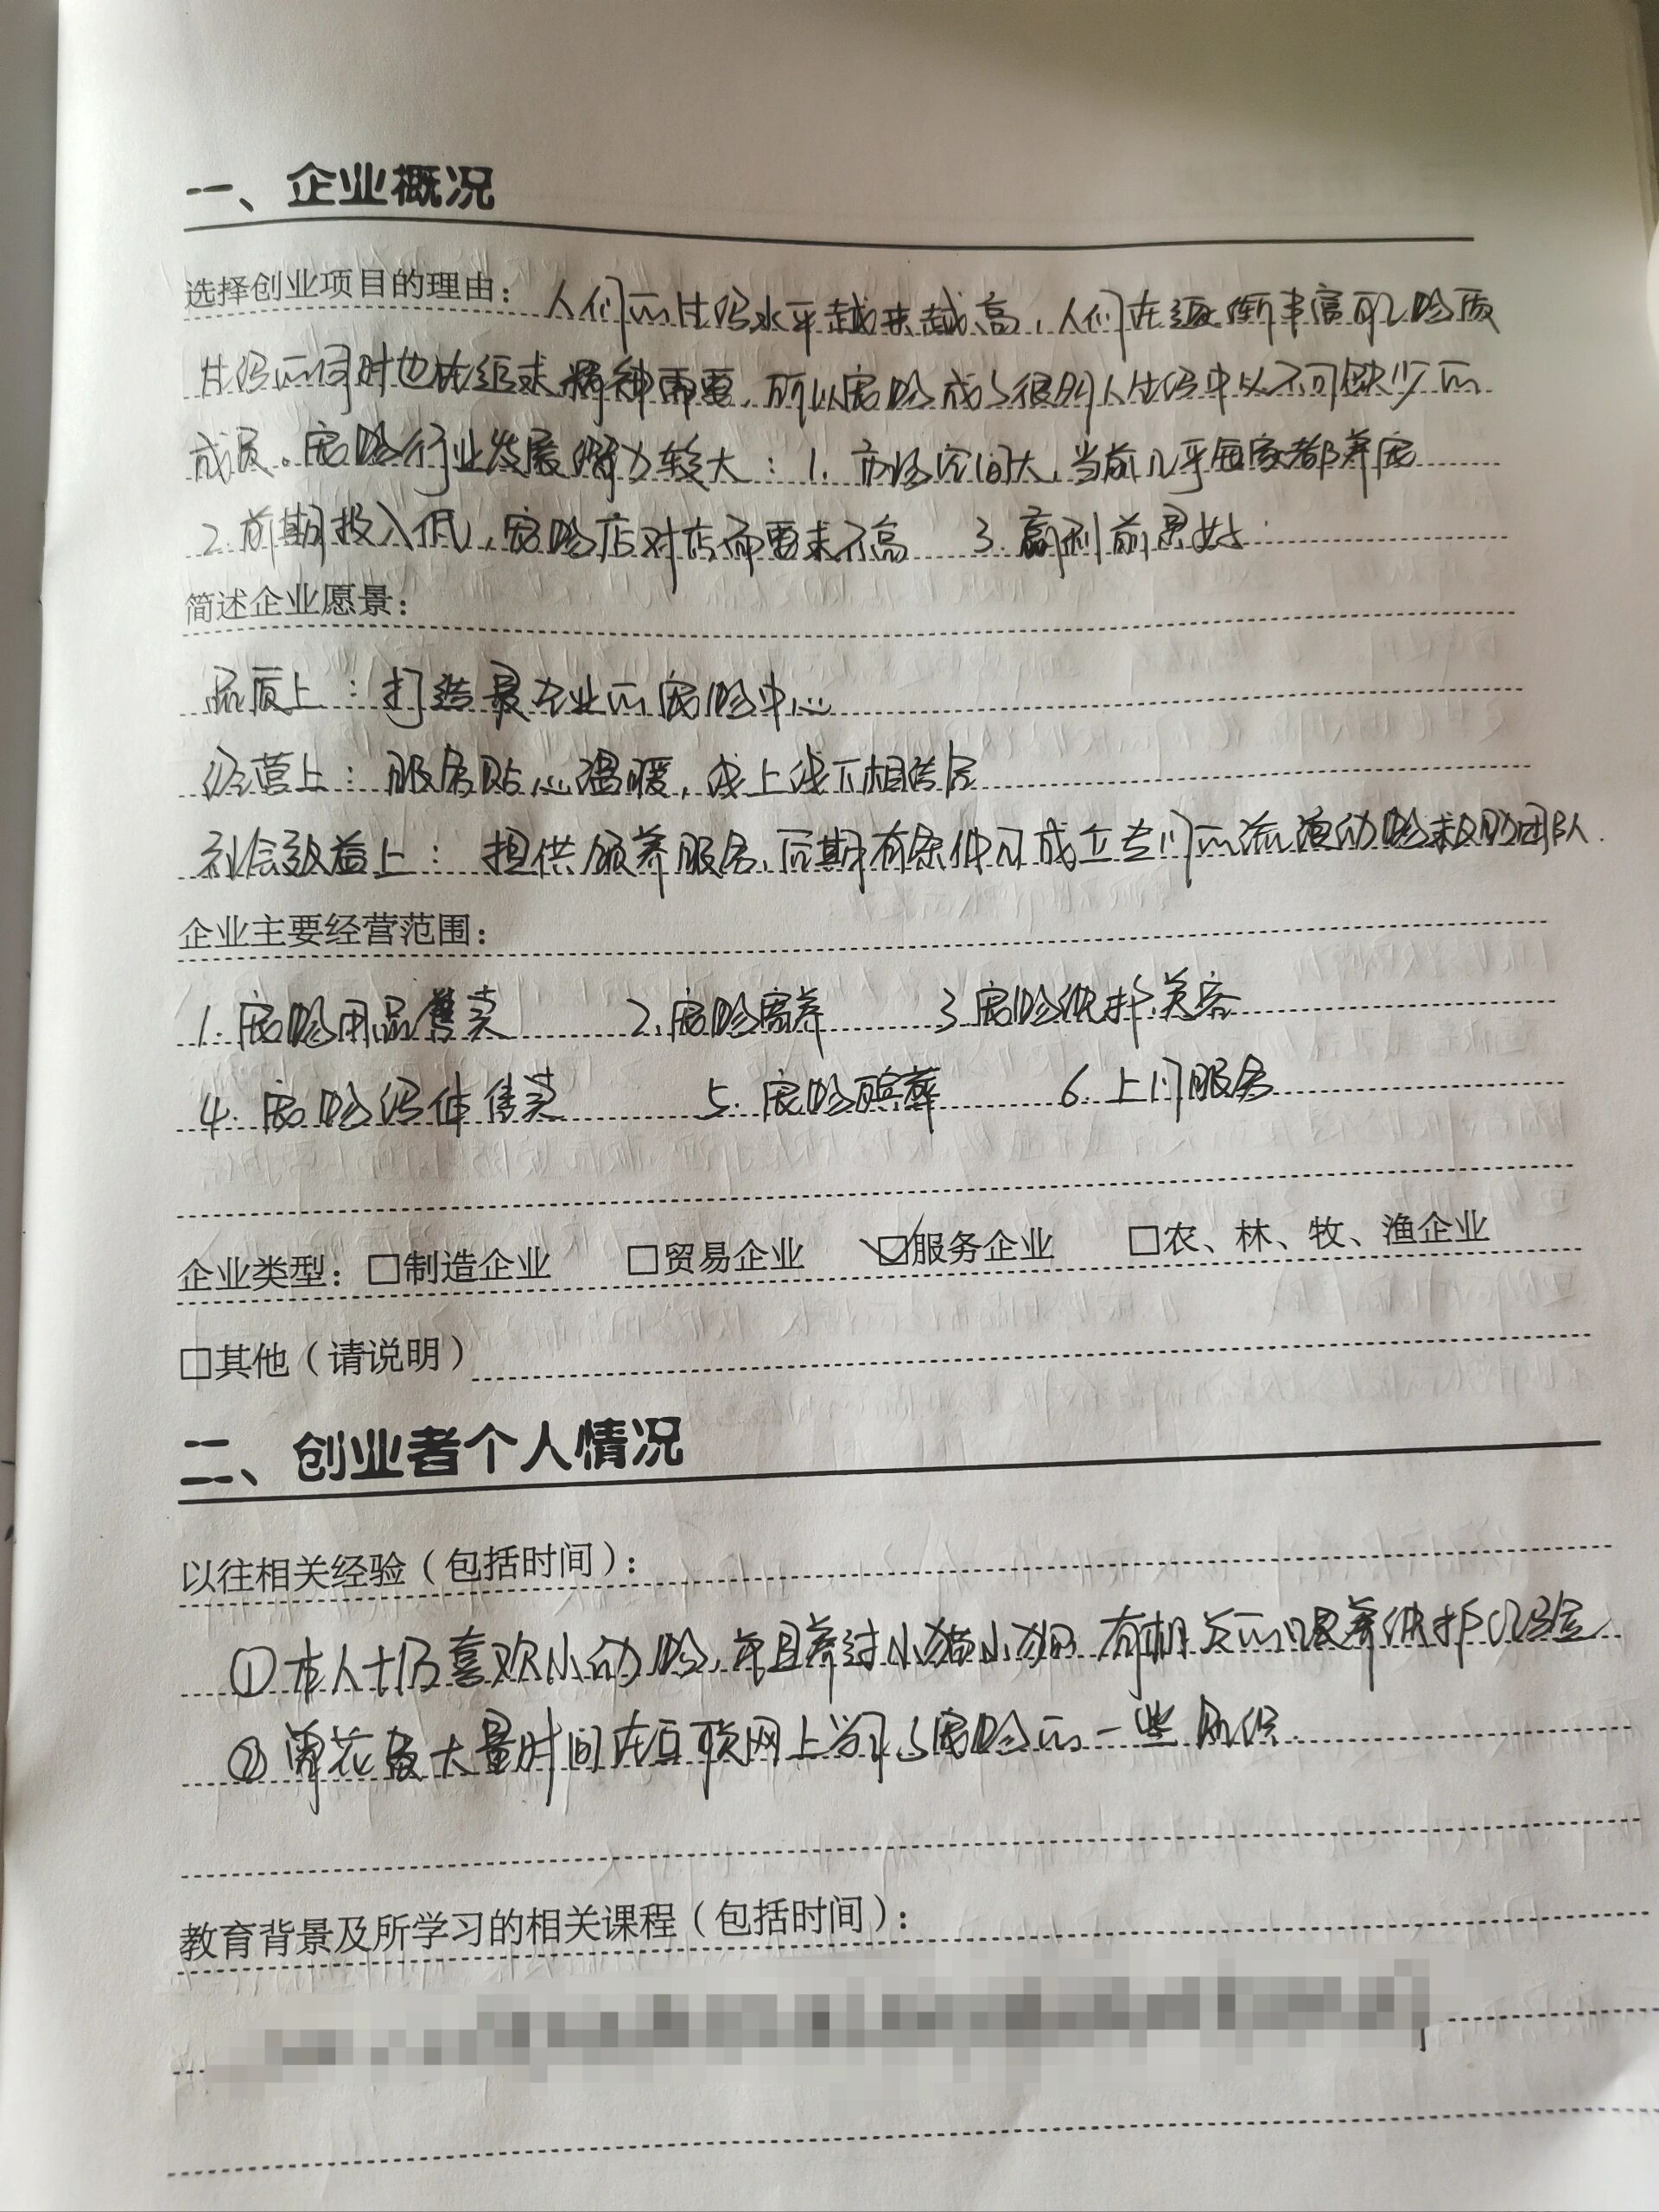 一、企业概况
选择创业项目的理由：人们的生活水平越来越高，人们在逐渐丰富的物质
生活的同时也在追求精神需要，所以宠物成了很多人生活中必不可缺少的
成员。宠物行业发展潜力较大：1. 市场空间大，当前几乎每家都养宠
2. 前期投入低，宠物店对店面要求不高 3. 赢利前景好.
简述企业愿景：
品质上：打造最专业的宠物中心
经营上：服务贴心温暖，线上线下相结合
社会效益上：提供领养服务，后期有条件可成立专门的流浪动物救助团队.
企业主要经营范围：
1. 宠物用品售卖 2. 宠物寄养 3 宠物保护、美容
4. 宠物活体售卖 5. 宠物殡葬 6. 上门服务
企业类型：□制造企业 □贸易企业 ☑服务企业 □农、林、牧、渔企业
□其他（请说明）
二、创业者个人情况
以往相关经验（包括时间）：
①本人十分喜欢小动物，并且养过小猫小狗 有相关的喂养保护经验
②曾花费大量时间在互联网上学习了宠物的一些知识.
教育背景及所学习的相关课程（包括时间）：